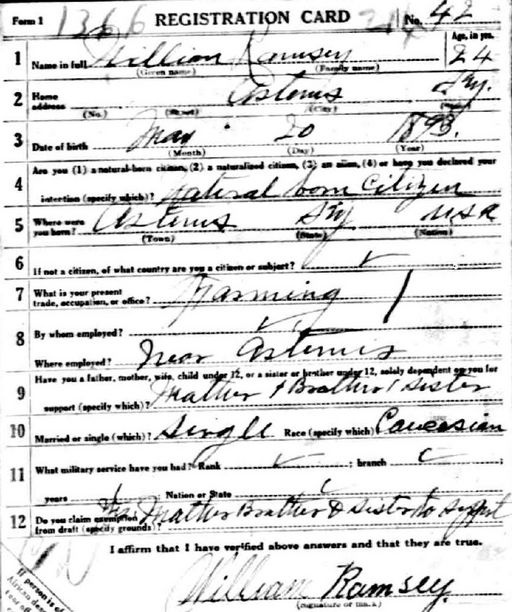 Form 1 1366 REGISTRATION CARD No. 42
1 Name in full William Ramsey Age, in yrs. 24
(Given name) (Family name)
2 Home address Artemis Ky.
(No.) (Street) (City) (State)
3 Date of birth May 20 1893.
(Month) (Day) (Year)
Are you (1) a natural-born citizen, (2) a naturalized citizen, (3) an alien, (4) or have you declared your
4 intention (specify which)? Natural born Citizen
5 Where were you born? Artemis Ky USA
(Town) (State) (Nation)
6 If not a citizen, of what country are you a citizen or subject? ✓
7 What is your present trade, occupation, or office? Farming 1
8 By whom employed? ✓
Where employed? Near Artemis
9 Have you a father, mother, wife, child under 12, or a sister or brother under 12, solely dependent on you for
support (specify which)? Mother & Brother & Sister
10 Married or single (which)? Single Race (specify which)? Caucasian
11 What military service have you had? Rank ✓ ; branch
years ; Nation or State
12 Do you claim exemption from draft (specify grounds)? Mother Brother & Sister to
I affirm that I have verified above answers and that they are true.
William Ramsey
(Signature or mark)
If person is of
African de